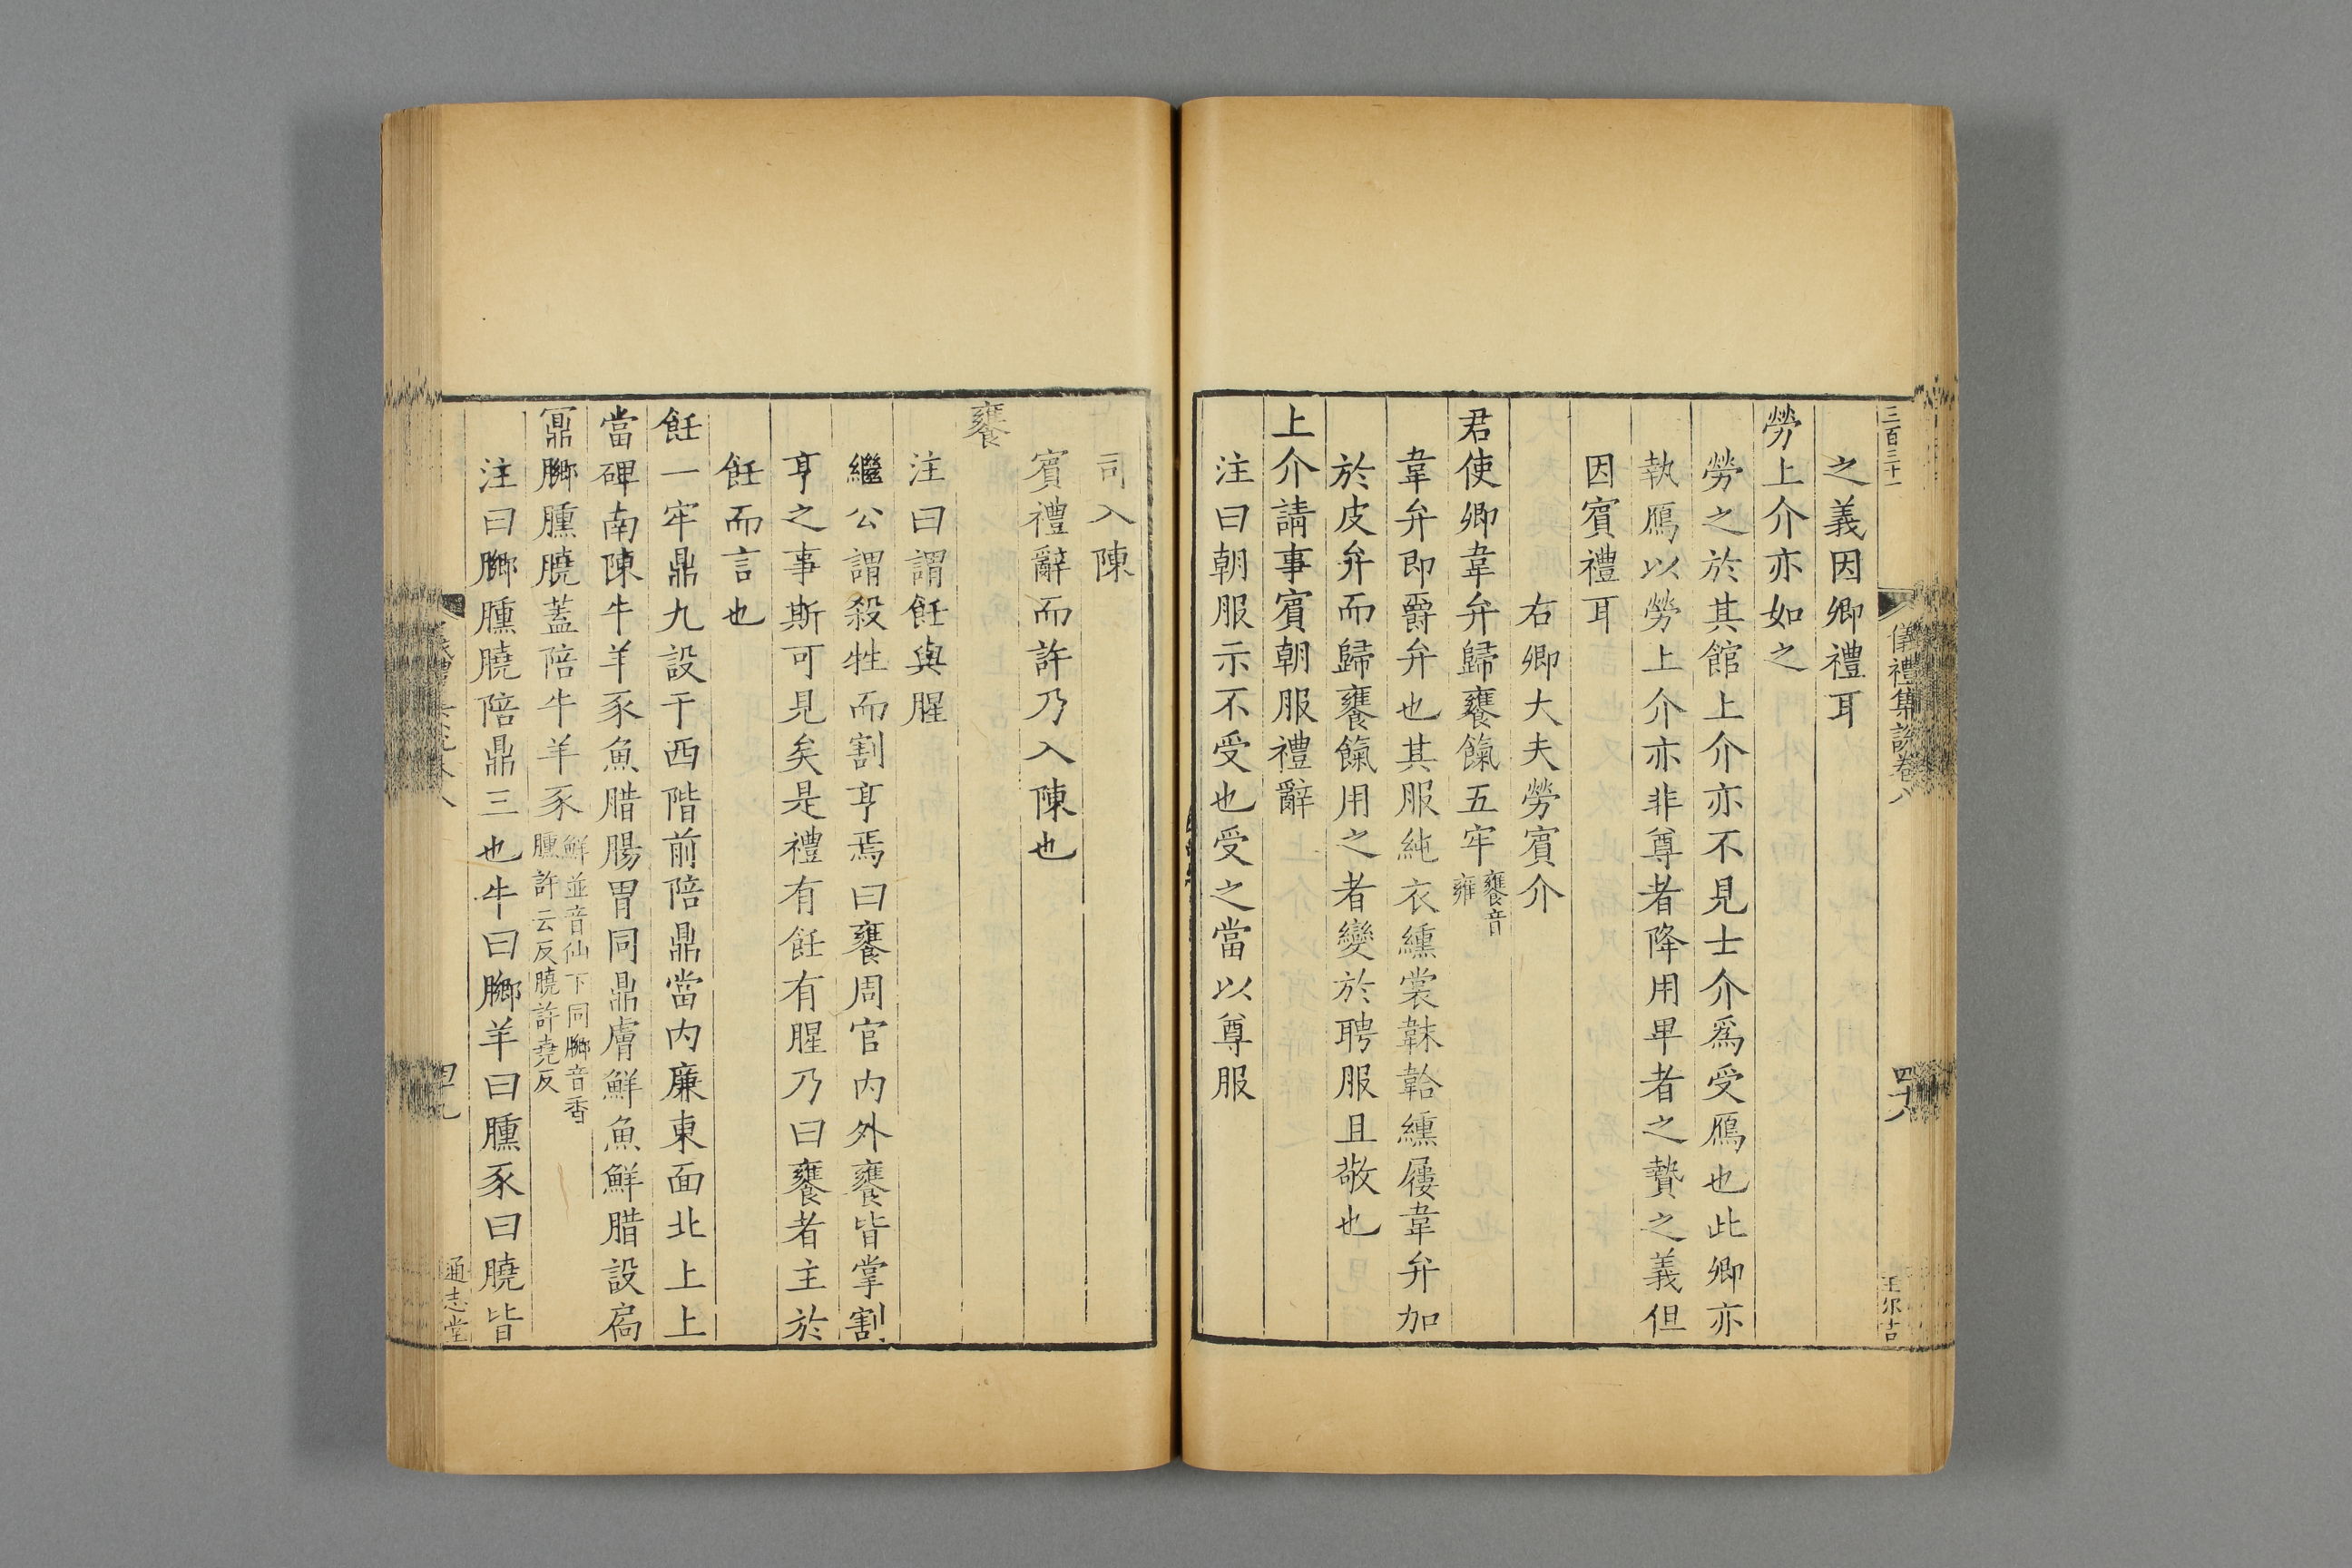 三百三十一
儀禮集說卷八
四十八
王尔吉
之義因卿禮耳
勞上介亦如之
勞之於其館上介亦不見士介爲受鴈也此卿亦
執鴈以勞上介亦非尊者降用卑者之贄之義但
因賓禮耳
右卿大夫勞賓介
君使卿韋弁歸饔餼五牢饔音雍
韋弁即爵弁也其服純衣纁裳韎韐纁屨韋弁加
於皮弁而歸饔餼用之者變於聘服且敬也
上介請事賓朝服禮辭
注曰朝服示不受也受之當以尊服
司入陳
賓禮辭而許乃入陳也
饔
注曰謂飪與腥
繼公謂殺牲而割亨焉曰饔周官内外饔皆掌割
亨之事斯可見矣是禮有飪有腥乃曰饔者主於
飪而言也
飪一牢鼎九設于西階前陪鼎當内廉東面北上上
當碑南陳牛羊豕魚腊腸胃同鼎膚鮮魚鮮腊設扃
鼏膷臐膮蓋陪牛羊豕鮮並音仙下同膷音香臐許云反膮許堯反
注曰膷臐膮陪鼎三也牛曰膷羊曰臐豕曰膮皆
四十九
通志堂